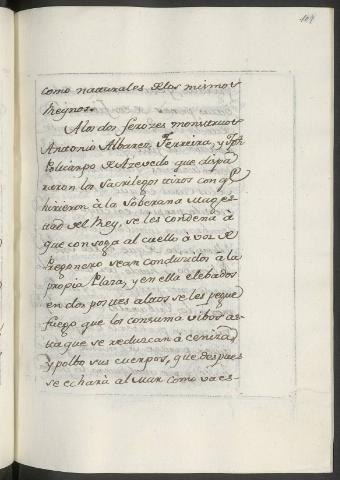 104
como naturales de los mismos
Reynos.
A los dos ferozes monstruos
Antonio Albarez Ferreira, y Jph
Policarpo de Azevedo que dispa
raron los Sacrilegos tiros con qe
hirieron à la Soberana Mages
tad del Rey, se les condenà à
que con soga al cuello à voz de
Pregonero sean conducidos à la
propia Plaza, y en ella elebados
en dos postes altos se les pegue
fuego que los consuma vibos as
ta que se reduzcan à ceniza,
y polbo sus cuerpos, que despues
se echarà al Mar como va es-